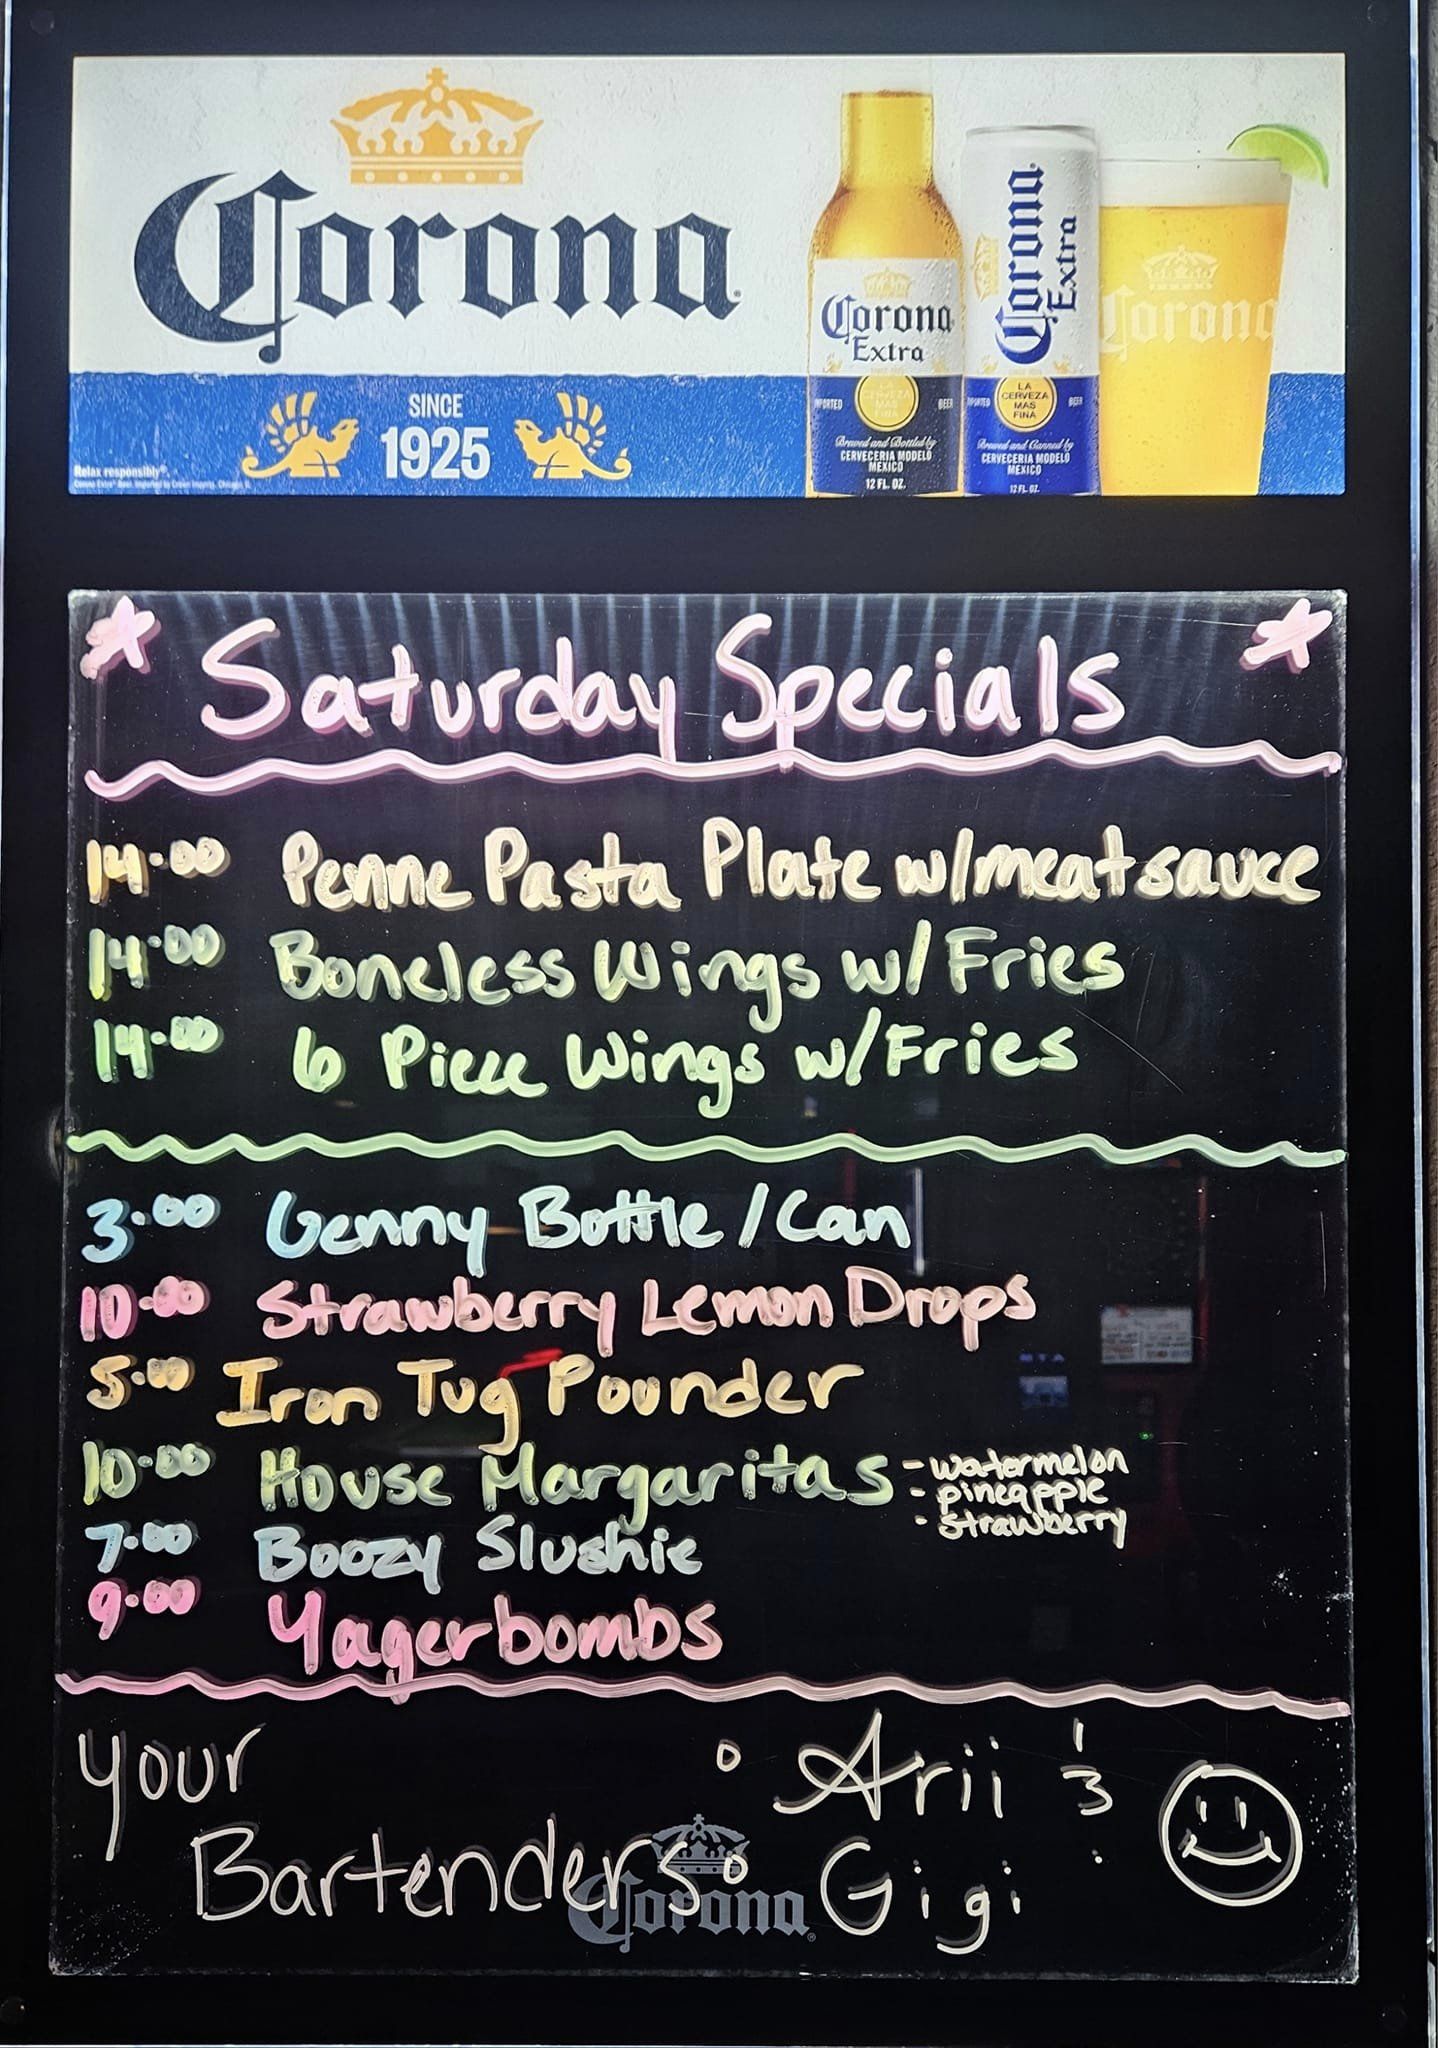 Corona
SINCE
1925
Relax responsibly®.
Corona Extra
IMPORTED LA CERVEZA MAS FINA BEER
Brewed and Bottled by
CERVECERIA MODELO
MEXICO
12 FL. OZ.
Corona Extra
LA CERVEZA MAS FINA BEER
Brewed and Canned by
CERVECERIA MODELO
MEXICO
12 FL. OZ.
Corona
Saturday Specials
14.00 Penne Pasta Plate w/meatsauce
14.00 Boneless Wings w/ Fries
14.00 6 Piece Wings w/Fries
3.00 Genny Bottle/Can
10.00 Strawberry Lemon Drops
5.00 Iron Tug Pounder
10.00 House Margaritas - watermelon
- pineapple
- strawberry
7.00 Boozy Slushie
9.00 Yagerbombs
your
Bartenders: Arii &
Gigi
Corona